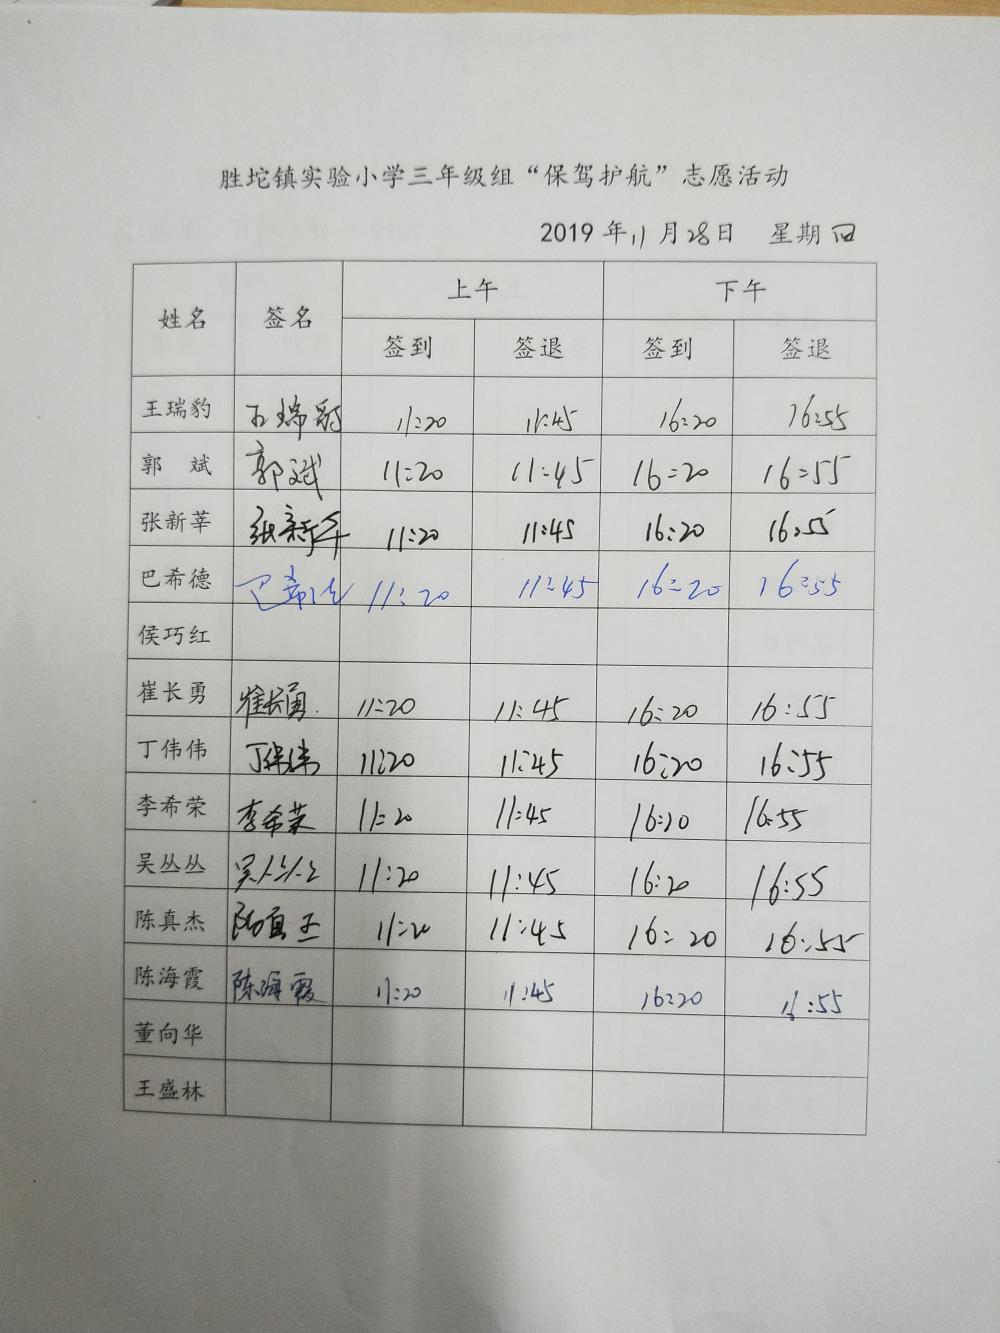 胜坨镇实验小学三年级组“保驾护航”志愿活动
2019 年 11 月 28 日 星期 四
姓名 签名 上午 下午
签到 签退 签到 签退
王瑞豹 王瑞豹 11:20 11:45 16:20 16:55
郭 斌 郭斌 11:20 11:45 16:20 16:55
张新莘 张新莘 11:20 11:45 16:20 16:55
巴希德 巴希德 11:20 11:45 16:20 16:55
侯巧红
崔长勇 崔长勇 11:20 11:45 16:20 16:55
丁伟伟 丁伟伟 11:20 11:45 16:20 16:55
李希荣 李希荣 11:20 11:45 16:20 16:55
吴丛丛 吴丛丛 11:20 11:45 16:20 16:55
陈真杰 陈真杰 11:20 11:45 16:20 16:55
陈海霞 陈海霞 11:20 11:45 16:20 16:55
董向华
王盛林